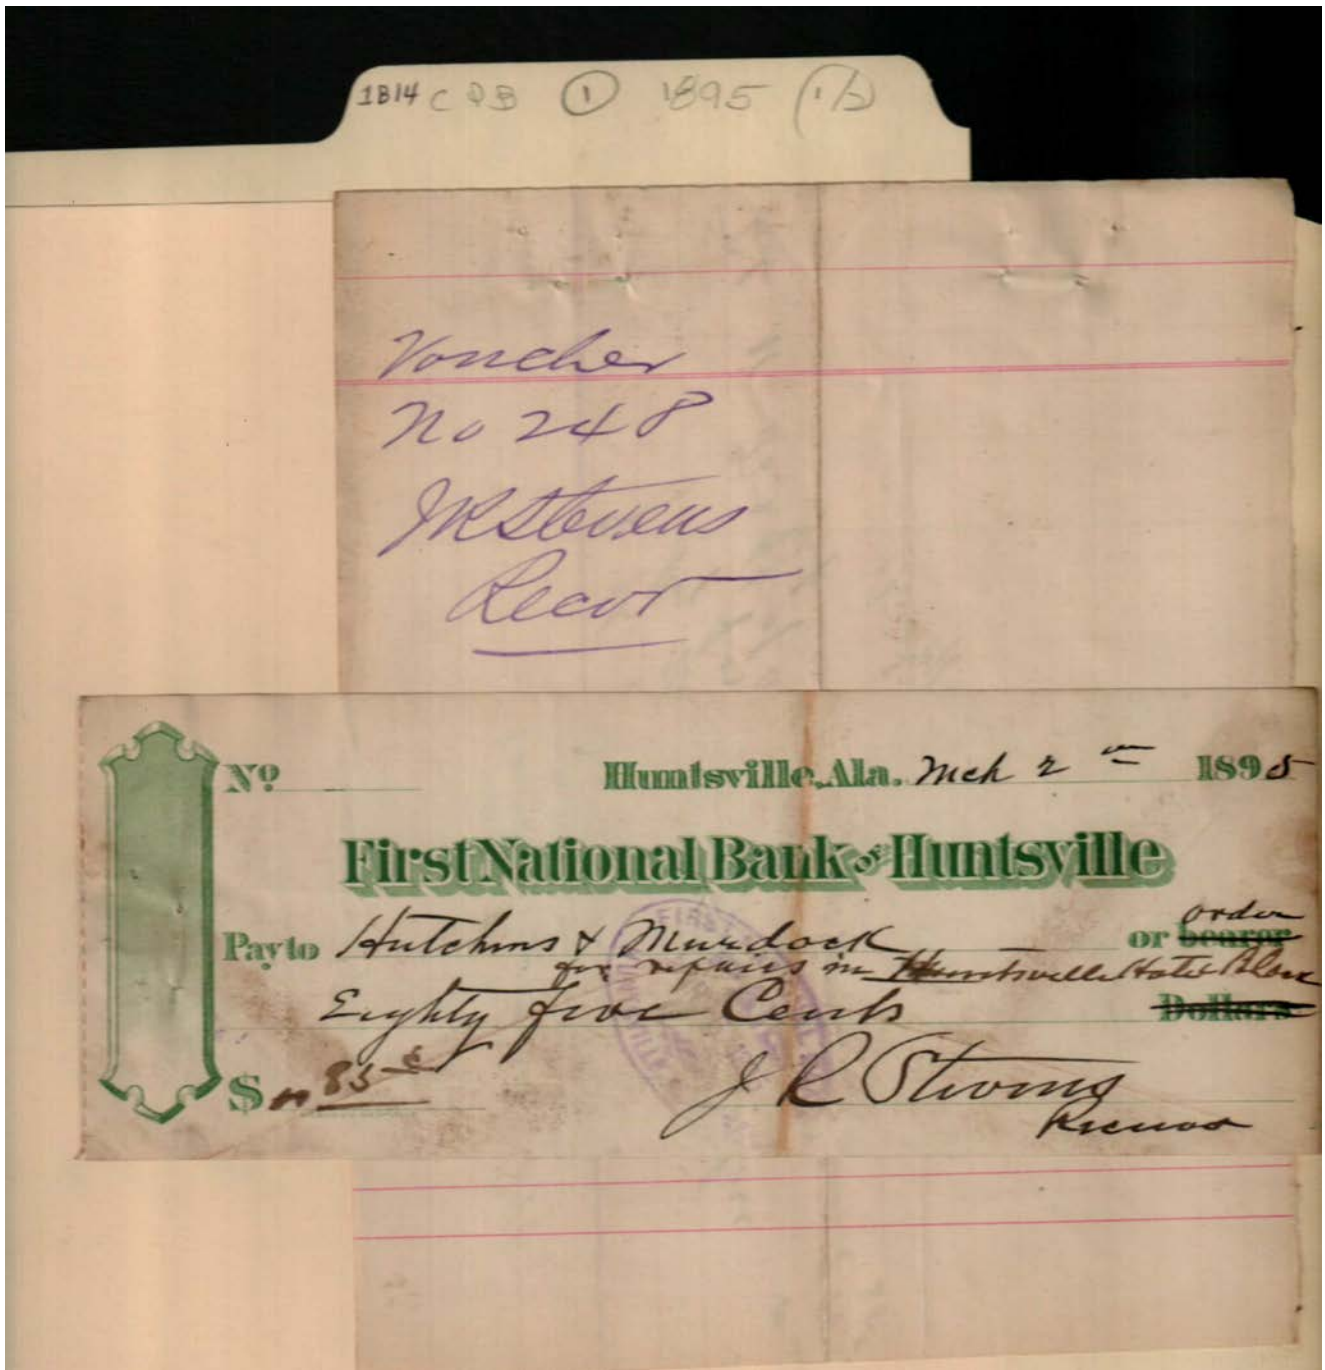 1B14 C D B 1 1895 (1/2)
Voucher
No 248
J R Stevens
Recvr
No Huntsville, Ala. Mch 2 1895
First National Bank of Huntsville
order
Pay to Hutchins & Murdock or bearer
for repairs in Huntsville Hotel Block
Eighty five Cents Dollars
$ 85
J R Stevens
Receiver
FIRST